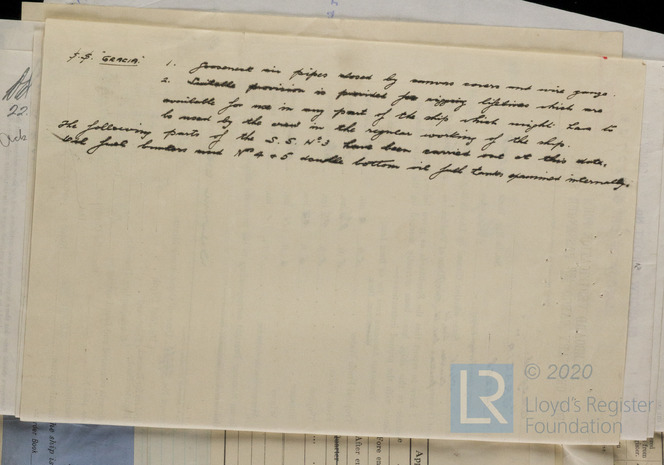 S.S. "GRACIA". 1. Goosneck air pipes closed by canvas covers and wire gauze.
2. Suitable provision is provided for rigging lifelines which are
available for use in any part of the ship which might have to
be used by the crew in the regular working of the ship.
The following parts of the S.S. No 3 have been carried out at this date.
fuel bunkers and Nos 4 & 5 double bottom oil fuel tanks examined internally.
22
© 2020
LR
Lloyd's Register
Foundation
the ship is
Book
After
Fore